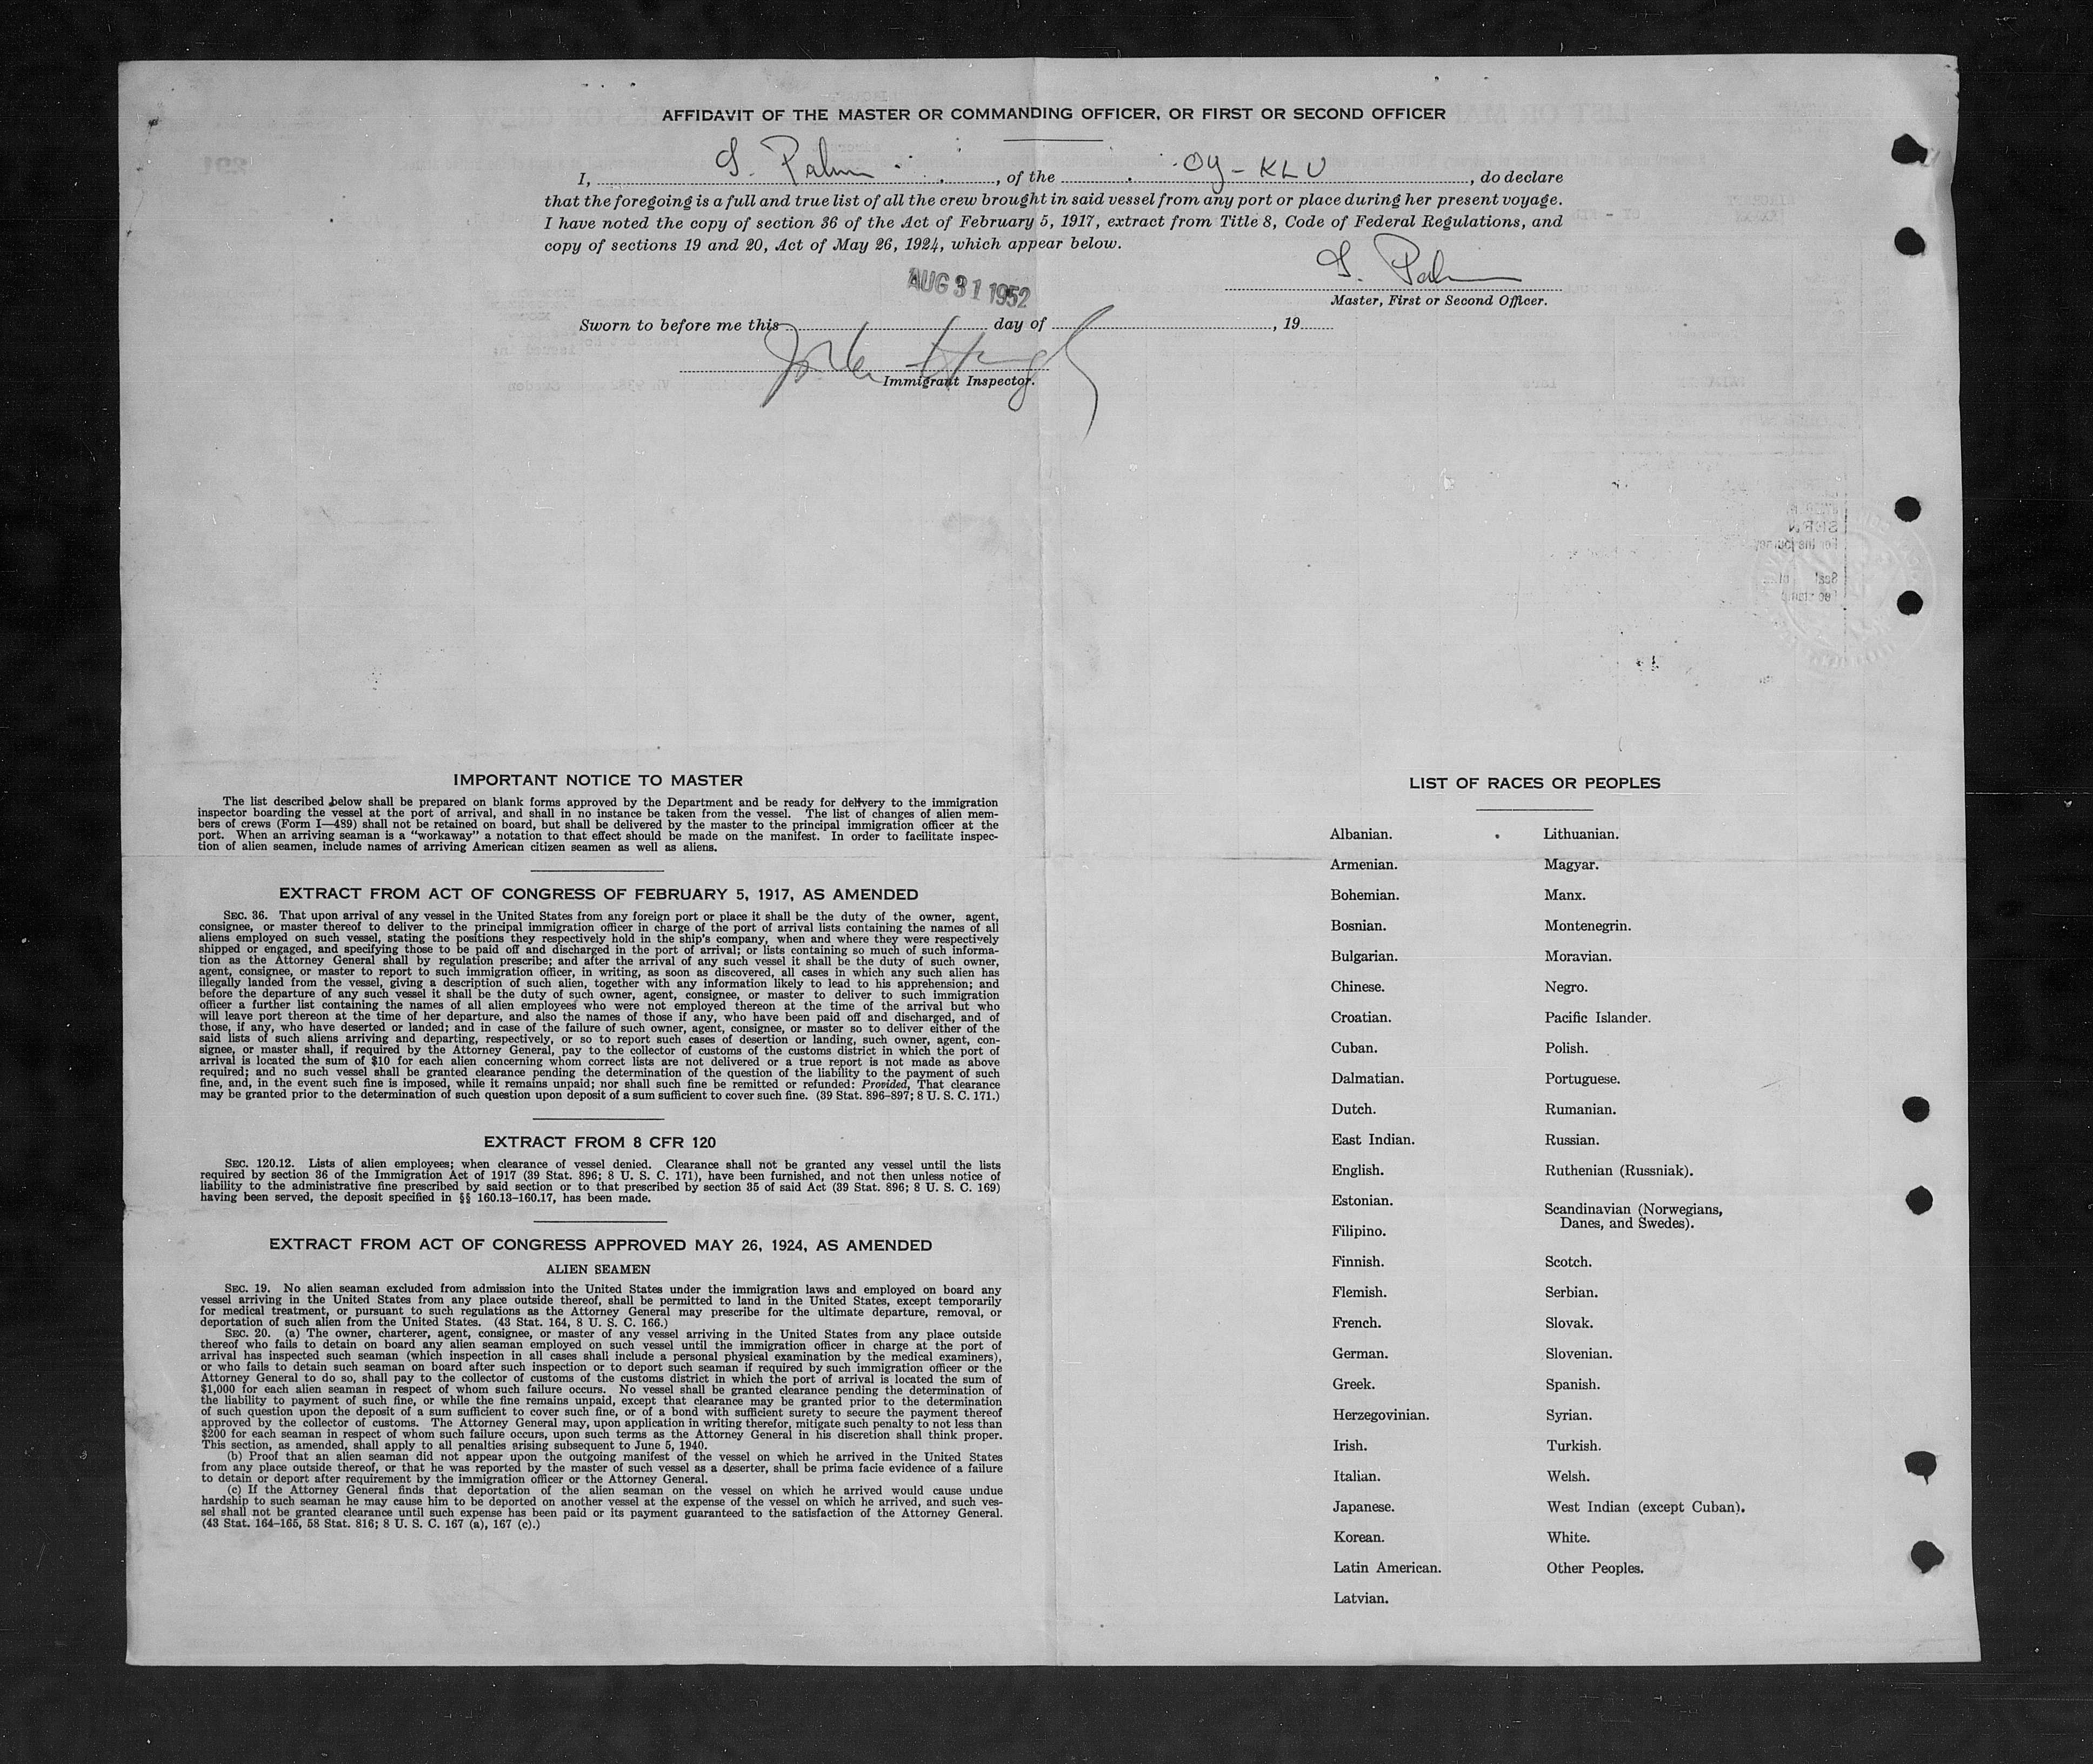 AFFIDAVIT OF THE MASTER OR COMMANDING OFFICER, OR FIRST OR SECOND OFFICER
I, S. Palm, of the OY-KLU, do declare
that the foregoing is a full and true list of all the crew brought in said vessel from any port or place during her present voyage.
I have noted the copy of section 36 of the Act of February 5, 1917, extract from Title 8, Code of Federal Regulations, and
copy of sections 19 and 20, Act of May 26, 1924, which appear below.
S. Palm
Master, First or Second Officer.
AUG 31 1952
Sworn to before me this day of , 19
Immigrant Inspector.
IMPORTANT NOTICE TO MASTER
The list described below shall be prepared on blank forms approved by the Department and be ready for delivery to the immigration
inspector boarding the vessel at the port of arrival, and shall in no instance be taken from the vessel. The list of changes of alien mem-
bers of crews (Form I—489) shall not be retained on board, but shall be delivered by the master to the principal immigration officer at the
port. When an arriving seaman is a “workaway” a notation to that effect should be made on the manifest. In order to facilitate inspec-
tion of alien seamen, include names of arriving American citizen seamen as well as aliens.
EXTRACT FROM ACT OF CONGRESS OF FEBRUARY 5, 1917, AS AMENDED
SEC. 36. That upon arrival of any vessel in the United States from any foreign port or place it shall be the duty of the owner, agent,
consignee, or master thereof to deliver to the principal immigration officer in charge of the port of arrival lists containing the names of all
aliens employed on such vessel, stating the positions they respectively hold in the ship's company, when and where they were respectively
shipped or engaged, and specifying those to be paid off and discharged in the port of arrival; or lists containing so much of such informa-
tion as the Attorney General shall by regulation prescribe; and after the arrival of any such vessel it shall be the duty of such owner,
agent, consignee, or master to report to such immigration officer, in writing, as soon as discovered, all cases in which any such alien has
illegally landed from the vessel, giving a description of such alien, together with any information likely to lead to his apprehension; and
before the departure of any such vessel it shall be the duty of such owner, agent, consignee, or master to deliver to such immigration
officer a further list containing the names of all alien employees who were not employed thereon at the time of the arrival but who
will leave port thereon at the time of her departure, and also the names of those if any, who have been paid off and discharged, and of
those, if any, who have deserted or landed; and in case of the failure of such owner, agent, consignee, or master so to deliver either of the
said lists of such aliens arriving and departing, respectively, or so to report such cases of desertion or landing, such owner, agent, con-
signee, or master shall, if required by the Attorney General, pay to the collector of customs of the customs district in which the port of
arrival is located the sum of $10 for each alien concerning whom correct lists are not delivered or a true report is not made as above
required; and no such vessel shall be granted clearance pending the determination of the question of the liability to the payment of such
fine, and, in the event such fine is imposed, while it remains unpaid; nor shall such fine be remitted or refunded: Provided, That clearance
may be granted prior to the determination of such question upon deposit of a sum sufficient to cover such fine. (39 Stat. 896–897; 8 U. S. C. 171.)
EXTRACT FROM 8 CFR 120
SEC. 120.12. Lists of alien employees; when clearance of vessel denied. Clearance shall not be granted any vessel until the lists
required by section 36 of the Immigration Act of 1917 (39 Stat. 896; 8 U. S. C. 171), have been furnished, and not then unless notice of
liability to the administrative fine prescribed by said section or to that prescribed by section 35 of said Act (39 Stat. 896; 8 U. S. C. 169)
having been served, the deposit specified in §§ 160.13–160.17, has been made.
EXTRACT FROM ACT OF CONGRESS APPROVED MAY 26, 1924, AS AMENDED
ALIEN SEAMEN
SEC. 19. No alien seaman excluded from admission into the United States under the immigration laws and employed on board any
vessel arriving in the United States from any place outside thereof, shall be permitted to land in the United States, except temporarily
for medical treatment, or pursuant to such regulations as the Attorney General may prescribe for the ultimate departure, removal, or
deportation of such alien from the United States. (43 Stat. 164, 8 U. S. C. 166.)
SEC. 20. (a) The owner, charterer, agent, consignee, or master of any vessel arriving in the United States from any place outside
thereof who fails to detain on board any alien seaman employed on such vessel until the immigration officer in charge at the port of
arrival has inspected such seaman (which inspection in all cases shall include a personal physical examination by the medical examiners),
or who fails to detain such seaman on board after such inspection or to deport such seaman if required by such immigration officer or the
Attorney General to do so, shall pay to the collector of customs of the customs district in which the port of arrival is located the sum of
$1,000 for each alien seaman in respect of whom such failure occurs. No vessel shall be granted clearance pending the determination of
the liability to payment of such fine, or while the fine remains unpaid, except that clearance may be granted prior to the determination
of such question upon the deposit of a sum sufficient to cover such fine, or of a bond with sufficient surety to secure the payment thereof
approved by the collector of customs. The Attorney General may, upon application in writing therefor, mitigate such penalty to not less than
$200 for each seaman in respect of whom such failure occurs, upon such terms as the Attorney General in his discretion shall think proper.
This section, as amended, shall apply to all penalties arising subsequent to June 5, 1940.
(b) Proof that an alien seaman did not appear upon the outgoing manifest of the vessel on which he arrived in the United States
from any place outside thereof, or that he was reported by the master of such vessel as a deserter, shall be prima facie evidence of a failure
to detain or deport after requirement by the immigration officer or the Attorney General.
(c) If the Attorney General finds that deportation of the alien seaman on the vessel on which he arrived would cause undue
hardship to such seaman he may cause him to be deported on another vessel at the expense of the vessel on which he arrived, and such ves-
sel shall not be granted clearance until such expense has been paid or its payment guaranteed to the satisfaction of the Attorney General.
(43 Stat. 164–165, 58 Stat. 816; 8 U. S. C. 167 (a), 167 (c).)
LIST OF RACES OR PEOPLES
Albanian.
Armenian.
Bohemian.
Bosnian.
Bulgarian.
Chinese.
Croatian.
Cuban.
Dalmatian.
Dutch.
East Indian.
English.
Estonian.
Filipino.
Finnish.
Flemish.
French.
German.
Greek.
Herzegovinian.
Irish.
Italian.
Japanese.
Korean.
Latin American.
Latvian.
Lithuanian.
Magyar.
Manx.
Montenegrin.
Moravian.
Negro.
Pacific Islander.
Polish.
Portuguese.
Rumanian.
Russian.
Ruthenian (Russniak).
Scandinavian (Norwegians,
Danes, and Swedes).
Scotch.
Serbian.
Slovak.
Slovenian.
Spanish.
Syrian.
Turkish.
Welsh.
West Indian (except Cuban).
White.
Other Peoples.